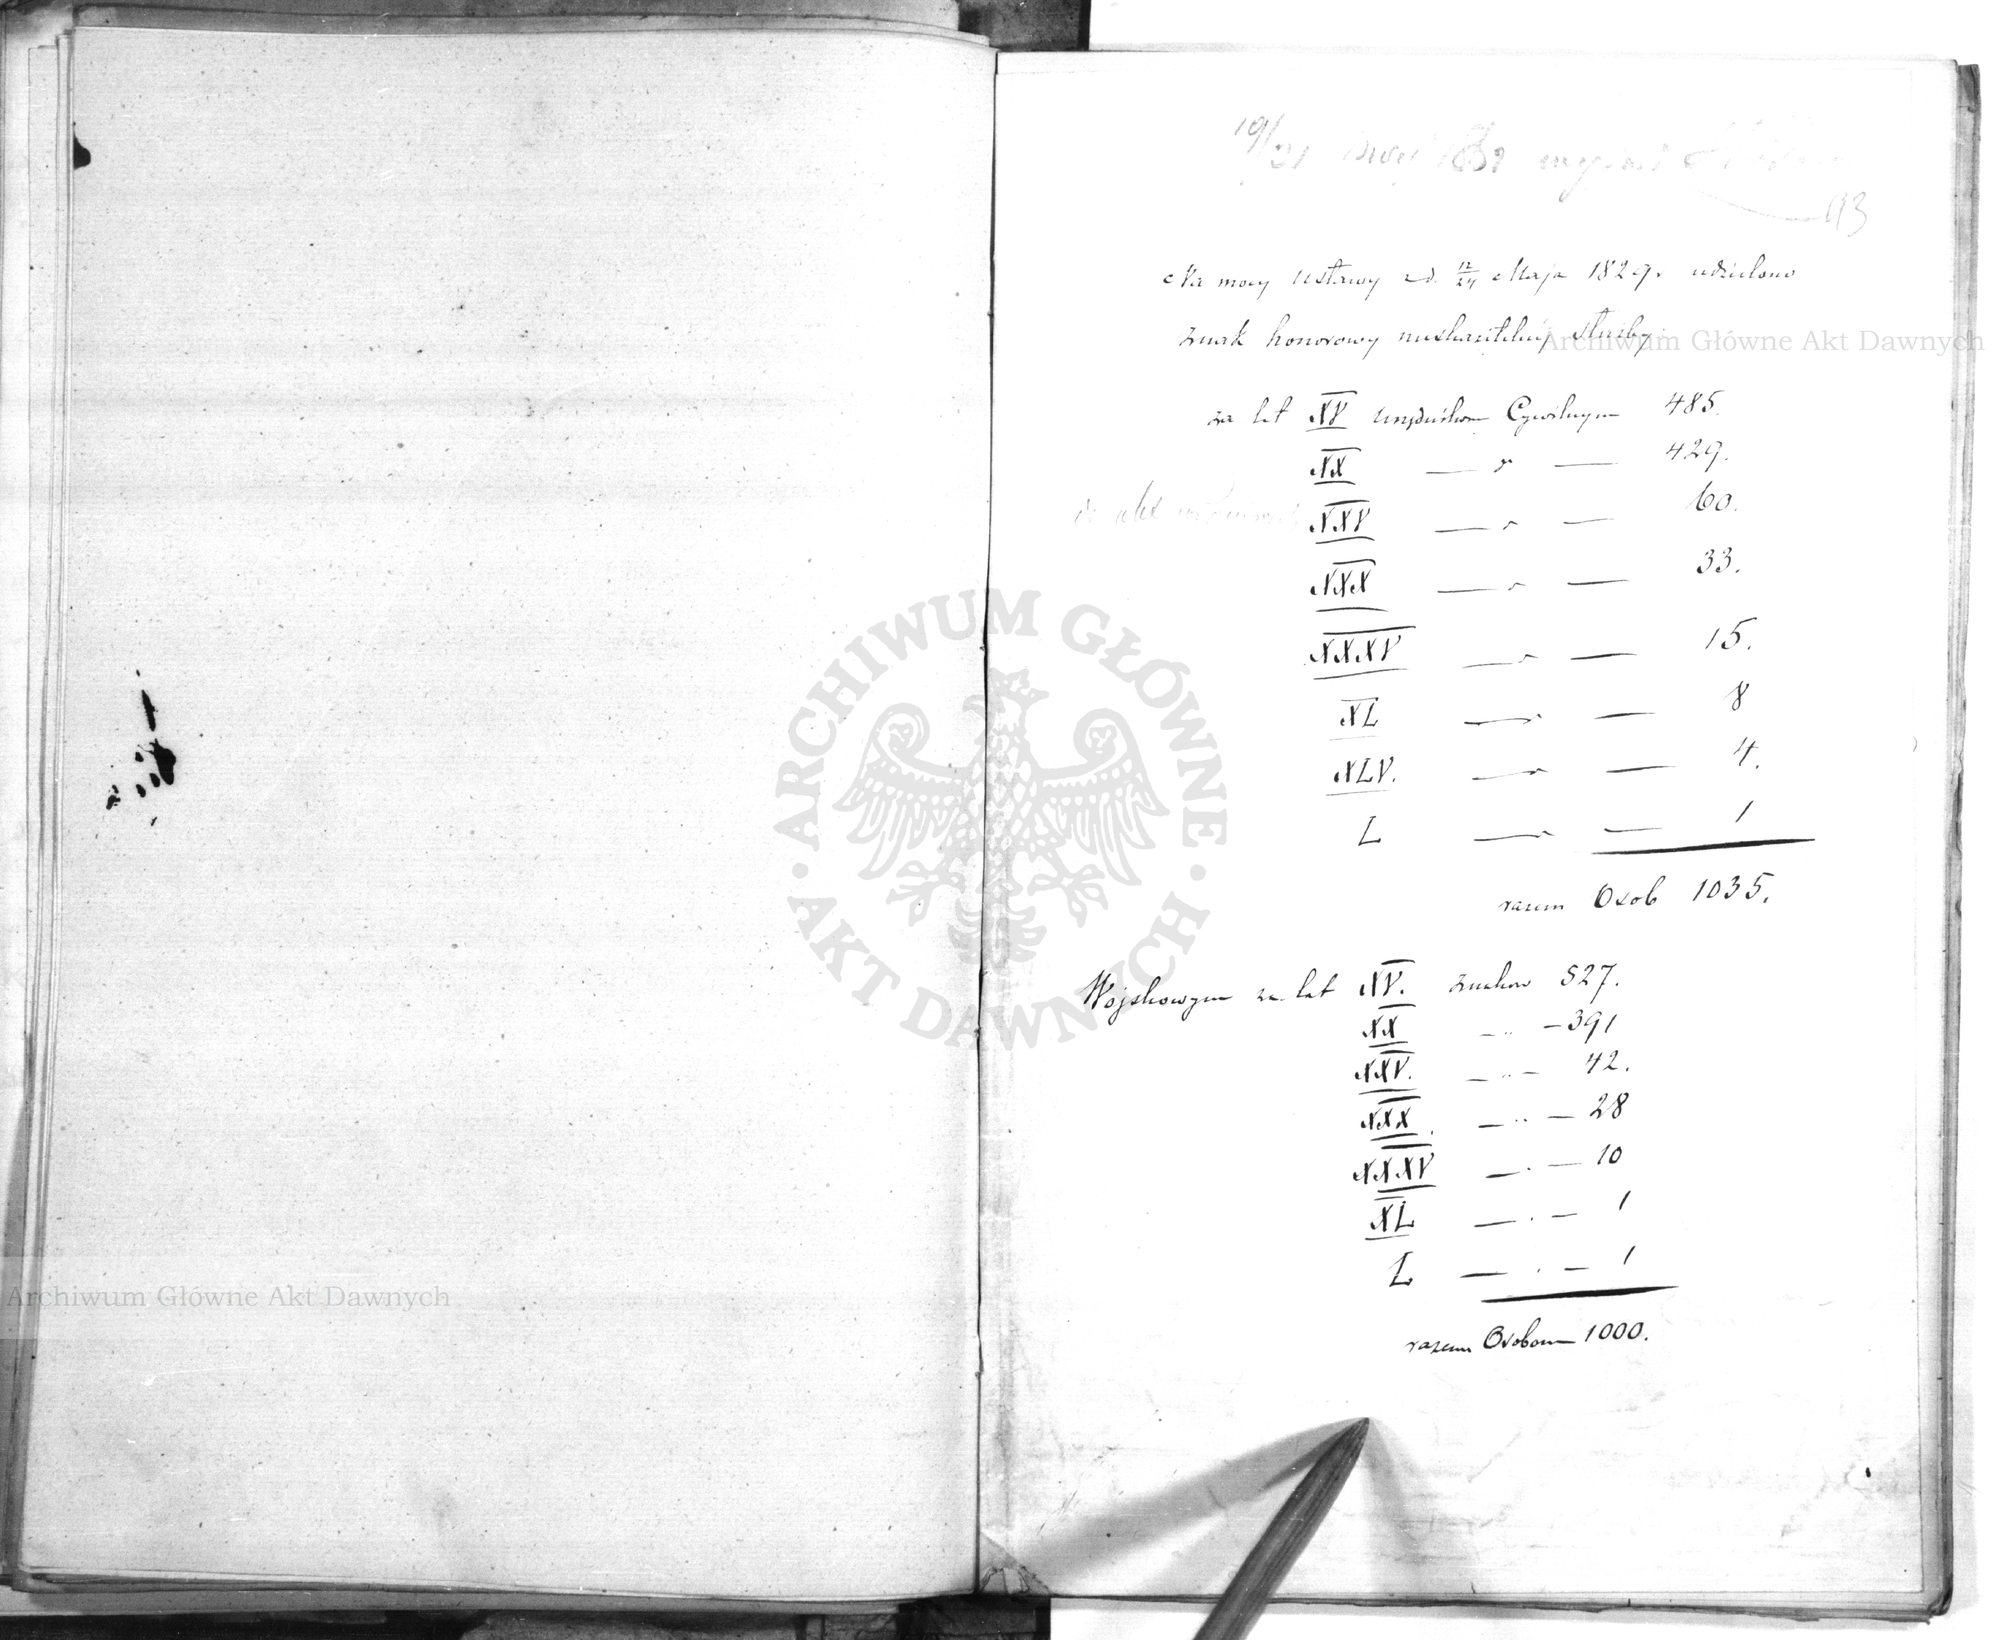 19/31 1839
113
Na mocy Ustawy z d. 12/24 Maja 1829 r. udzielono
znak honorowy nieskazitelnéj służby.
za lat XV Urzędnikom Cywilnym 485.
XX — " — 429.
do akt XXV — " — 60.
XXX — " — 33.
XXXV — " — 15.
XL — " — 8
XLV. — " — 4.
L — " — 1
razem Osob 1035.
Wojskowym za lat XV. znakow 527.
XX — " — 391
XXV. — " — 42.
XXX. — " — 28
XXXV — " — 10
XL — " — 1
L — " — 1
razem Osobom 1000.
ARCHIWUM GŁÓWNE
AKT DAWNYCH
Archiwum Główne Akt Dawnych
Archiwum Główne Akt Dawnych